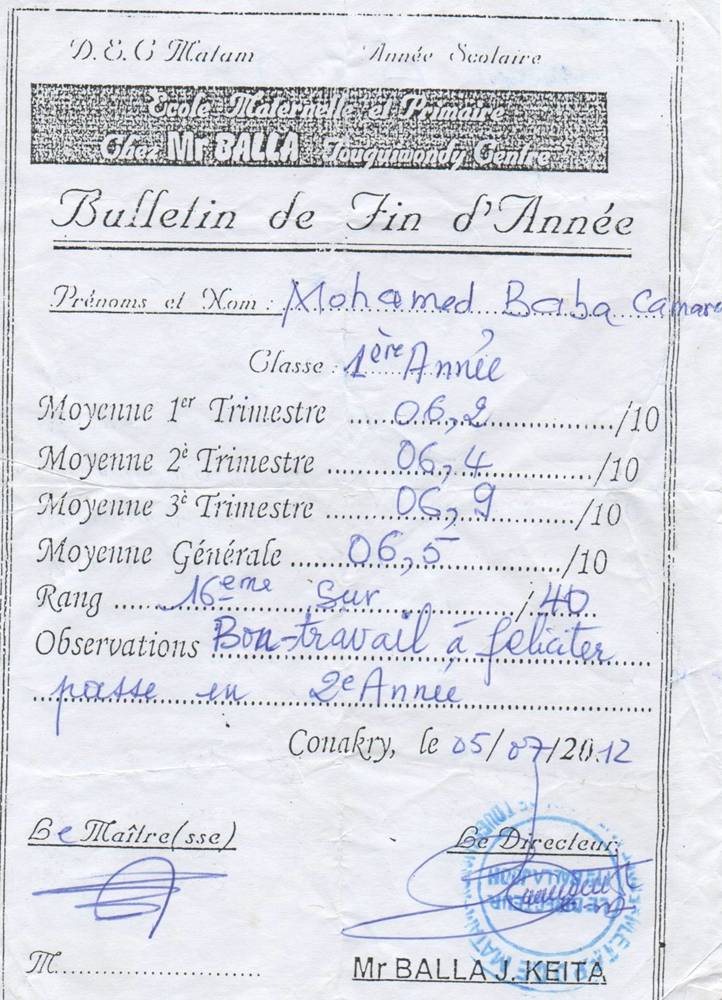 D.E.C Matam Année Scolaire
Ecole Maternelle et Primaire
Chez Mr BALLA Touguiwondy Centre
Bulletin de Fin d'Année
Prénoms et Nom : Mohamed Baba Camara
Classe : 1ère Année
Moyenne 1er Trimestre 06,2 /10
Moyenne 2è Trimestre 06,4 /10
Moyenne 3è Trimestre 06,9 /10
Moyenne Générale 06,5 /10
Rang 16eme sur / 40
Observations Bon-travail à féliciter
passe en 2e Année
Conakry, le 05/07/2012
Le Maître(sse) Le Directeur
LE DIRECTEUR
M. Mr BALLA J. KEITA